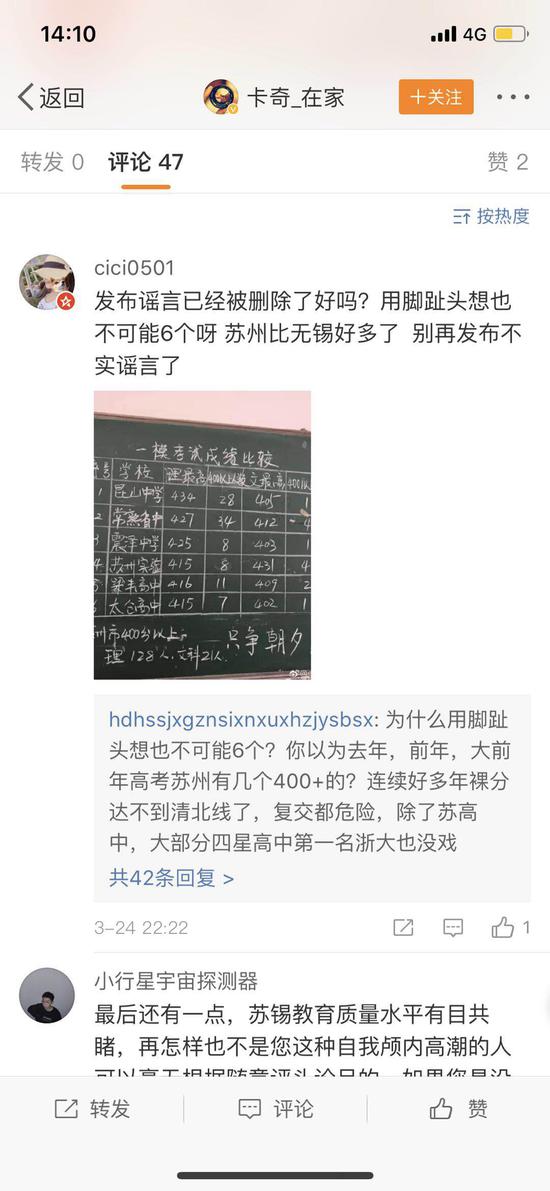 14:10
4G
返回
卡奇_在家
+关注
转发 0
评论 47
赞 2
按热度
cici0501
发布谣言已经被删除了好吗？用脚趾头想也
不可能6个呀 苏州比无锡好多了 别再发布不
实谣言了
一模考试成绩比较
号 学校 理最高 400以上 文最高 400以
1 昆山中学 434 28 405 1
2 常熟省中 427 34 412 4
3 震泽中学 425 8 403 1
4 苏州实验 415 8 431 4
5 梁丰高中 416 11 409 2
6 太仓高中 415 7 402 1
州市400分以上
理 128人 文科21人
只争朝夕
hdhssjxgznsixnxuxhzjysbsx: 为什么用脚趾
头想也不可能6个？你以为去年，前年，大前
年高考苏州有几个400+的？连续好多年裸分
达不到清北线了，复交都危险，除了苏高
中，大部分四星高中第一名浙大也没戏
共42条回复 >
3-24 22:22
1
小行星宇宙探测器
最后还有一点，苏锡教育质量水平有目共
睹，再怎样也不是您这种自我颅内高潮的人
转发
评论
赞